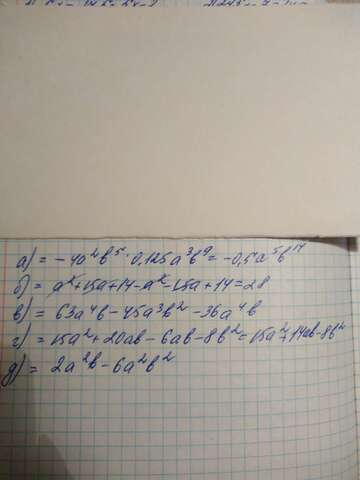 а) = -4a²b⁵ · 0,125a³b⁹ = -0,5a⁵b¹⁴
б) = a²+15a+14-a²-15a+14=28
в) = 63a⁴b-45a³b²-36a⁴b
г) = 15a²+20ab-6ab-8b²=15a²+14ab-8b²
д) = 2a²b-6a²b²